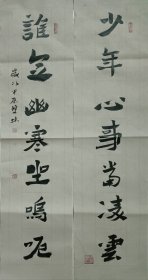 少年心事当凌雲
誰念幽寒坐嗚呃